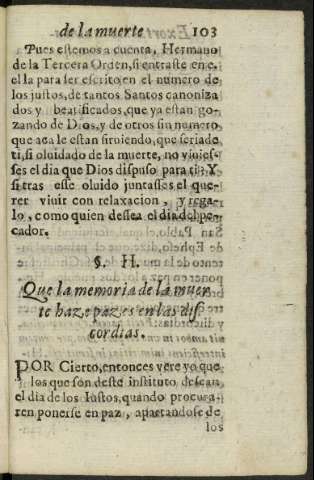 de la muerte 103
Pues estemos a cuenta, Hermano
de la Tercera Orden, si entraste en e-
ella para ser escrito en el numero de
los justos, de tantos Santos canoniza
dos y beatificados, que ya estan go-
zando de Dios, y de otros sin numero
que aca le estan siruiendo, que seria de
ti, si oluidado de la muerte, no viuies-
ses el dia que Dios dispuso para ti? Y
si tras esse oluido juntasses el que-
rer viuir con relaxacion, y rega-
lo, como quien dessea el dia del pe-
cador.
§. II.
Que la memoria de la muer
te haze pazes en las dis
cordias.
POR Cierto, entonces vere yo que
los que son deste instituto desean
el dia de los Iustos, quando procura-
ren ponerse en paz, apartandose de
los